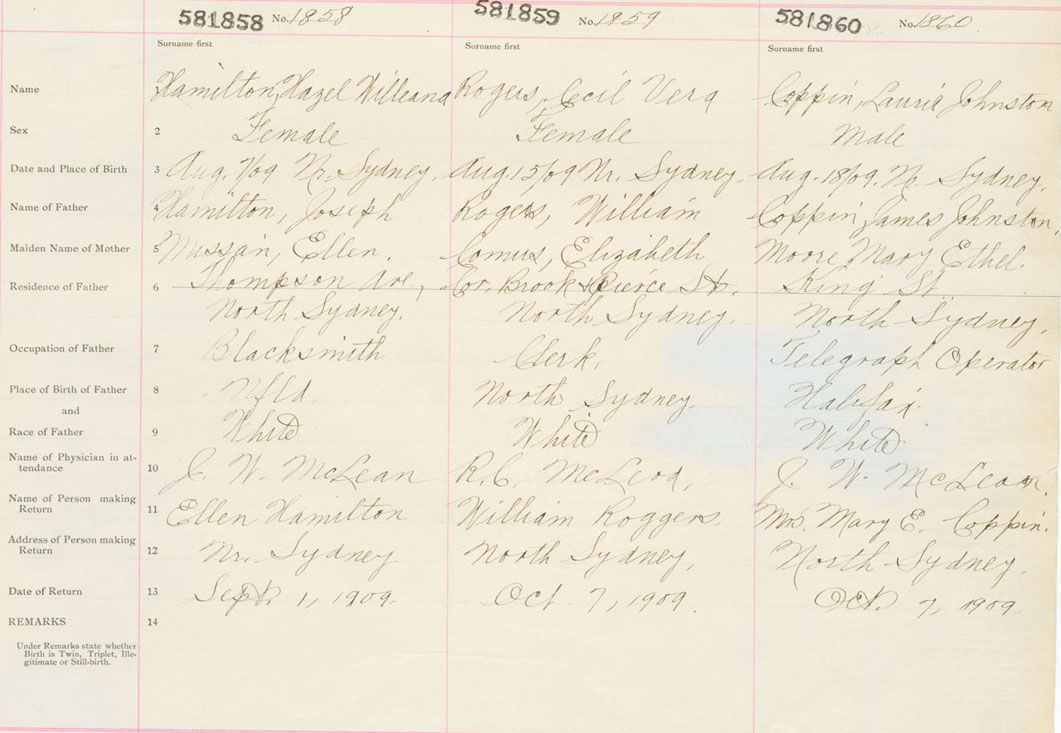 581858 No. 1858 581859 No. 1859 581860 No. 1860
Surname first Surname first Surname first
Name Hamilton, Hazel Willeana Rogers, Cecil Vera Coppin, Laurie Johnston
Sex 2 Female Female Male
Date and Place of Birth 3 Aug. 7/09 Nr. Sydney. Aug. 15/09 Nr. Sydney. Aug. 18/09. No. Sydney.
Name of Father 4 Hamilton, Joseph Rogers, William Coppin, James Johnston,
Maiden Name of Mother 5 Ellen. Comus, Elizabeth Moore Mary Ethel.
Residence of Father 6 Thompson Ave, Cor. Brook & Pierce Sts. King St.
North Sydney. North Sydney. North Sydney.
Occupation of Father 7 Blacksmith Clerk. Telegraph Operator
Place of Birth of Father 8 Nfld. North Sydney. Halifax.
and
Race of Father 9 White White White
Name of Physician in at-
tendance 10 J. W. McLean R.C. McLeod, J. W. McLean.
Name of Person making
Return 11 Ellen Hamilton William Roggers. Mrs. Mary E. Coppin.
Address of Person making
Return 12 Nr. Sydney North Sydney, North Sydney.
Date of Return 13 Sept. 1, 1909. Oct 7, 1909. Oct. 7, 1909
REMARKS 14
Under Remarks state whether
Birth is Twin, Triplet, Ille-
gitimate or Still-birth.